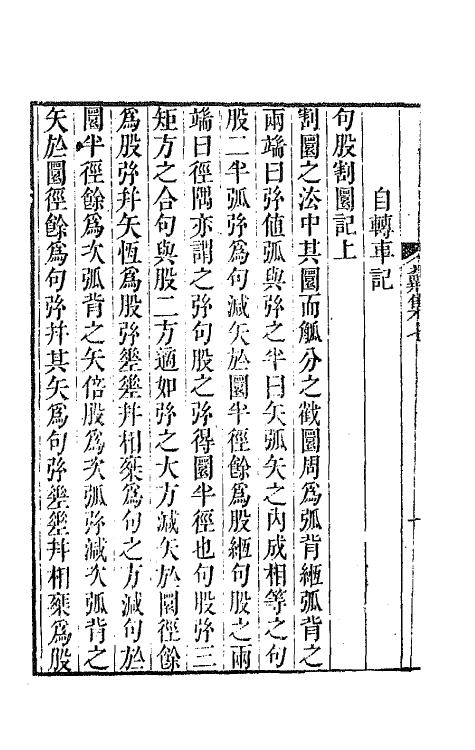 自轉車記
句股割圜記上
割圜之法中其圜而觚分之截圜周爲弧背縆弧背之
兩端曰弦値弧與弦之半曰矢弧矢之內成相等之句
股二半弧弦爲句減矢於圜半徑餘爲股縆句股之兩
端曰徑隅亦謂之弦句股之弦得圜半徑也句股弦三
矩方之合句與股二方適如弦之大方減矢於圜徑餘
爲股弦幷矢恆爲股弦𢆯𢆯幷相乗爲句之方減句於
圜半徑餘爲次弧背之矢倍股爲次弧弦減次弧背之
矢於圜徑餘爲句弦幷其矢爲句弦𢆯𢆯幷相乗爲股